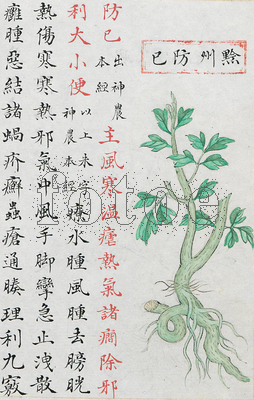 黔州防已
防已出神農本經主風寒温瘧熱氣諸癇除邪
利大小便以上朱字神農本經療水腫風腫去膀胱
熱傷寒寒熱邪氣中風手脚攣急止洩散
癰腫惡結諸蝸疥癬蟲瘡通腠理利九竅
fotoe